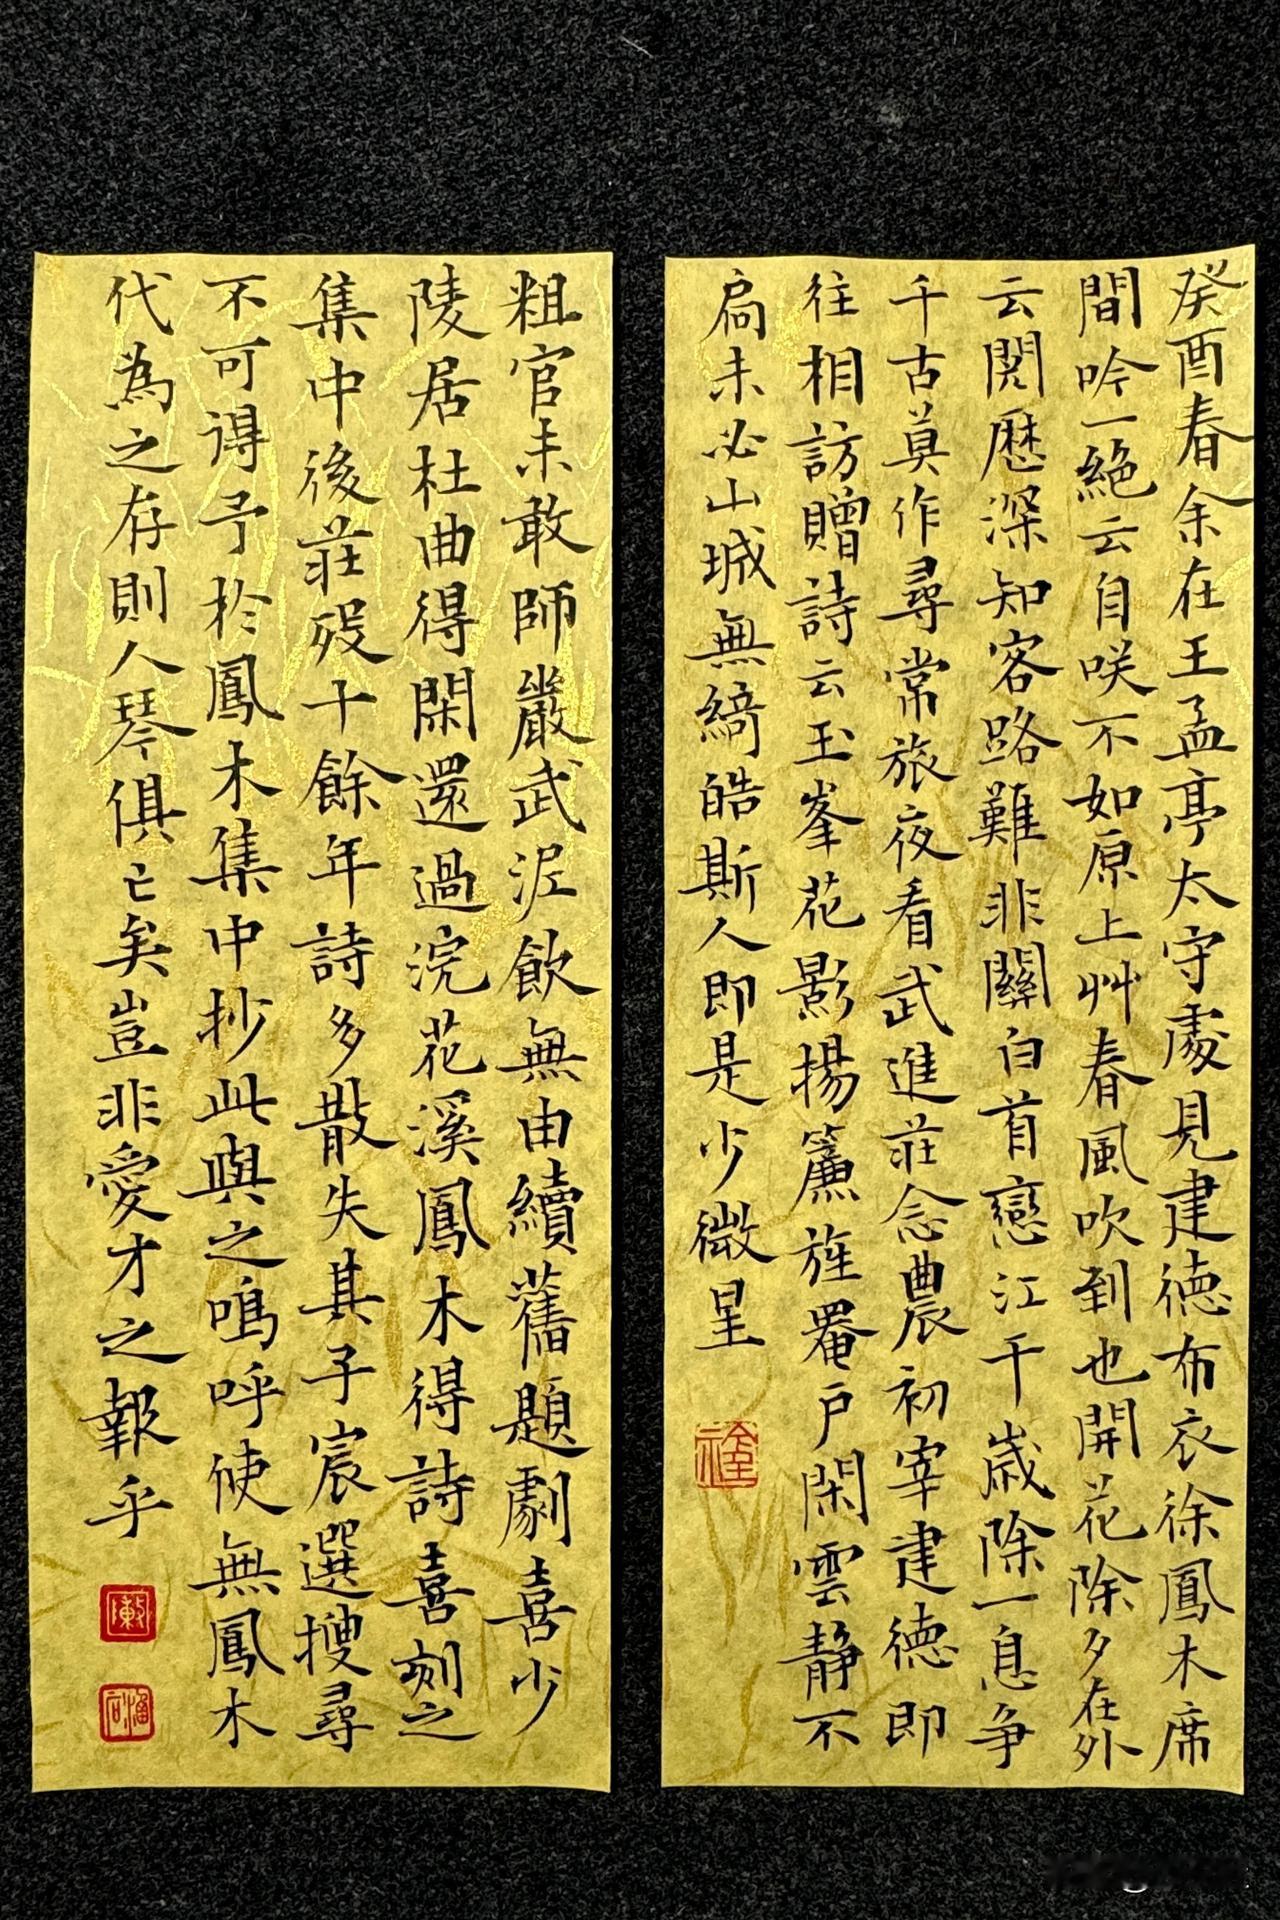 癸酉春余在王孟亭太守處見建德布衣徐鳳木席
間吟一絕云自咲不如原上艸春風吹到也開花除夕在外
云閱歷深知客路難非關白首戀江干歲除一息争
千古莫作尋常旅夜看武進莊念農初宰建德即
往相訪贈詩云玉峯花影揚簾旌罨戶閑雲静不
扃未必山城無綺皓斯人即是少微星
粗官未敢師嚴武泥飲無由續舊題劇喜少
陵居杜曲得閑還過浣花溪鳳木得詩喜刻之
集中後莊歿十餘年詩多散失其子宸選搜尋
不可得予於鳳木集中抄此與之嗚呼使無鳳木
代為之存則人琴俱亡矣豈非愛才之報乎